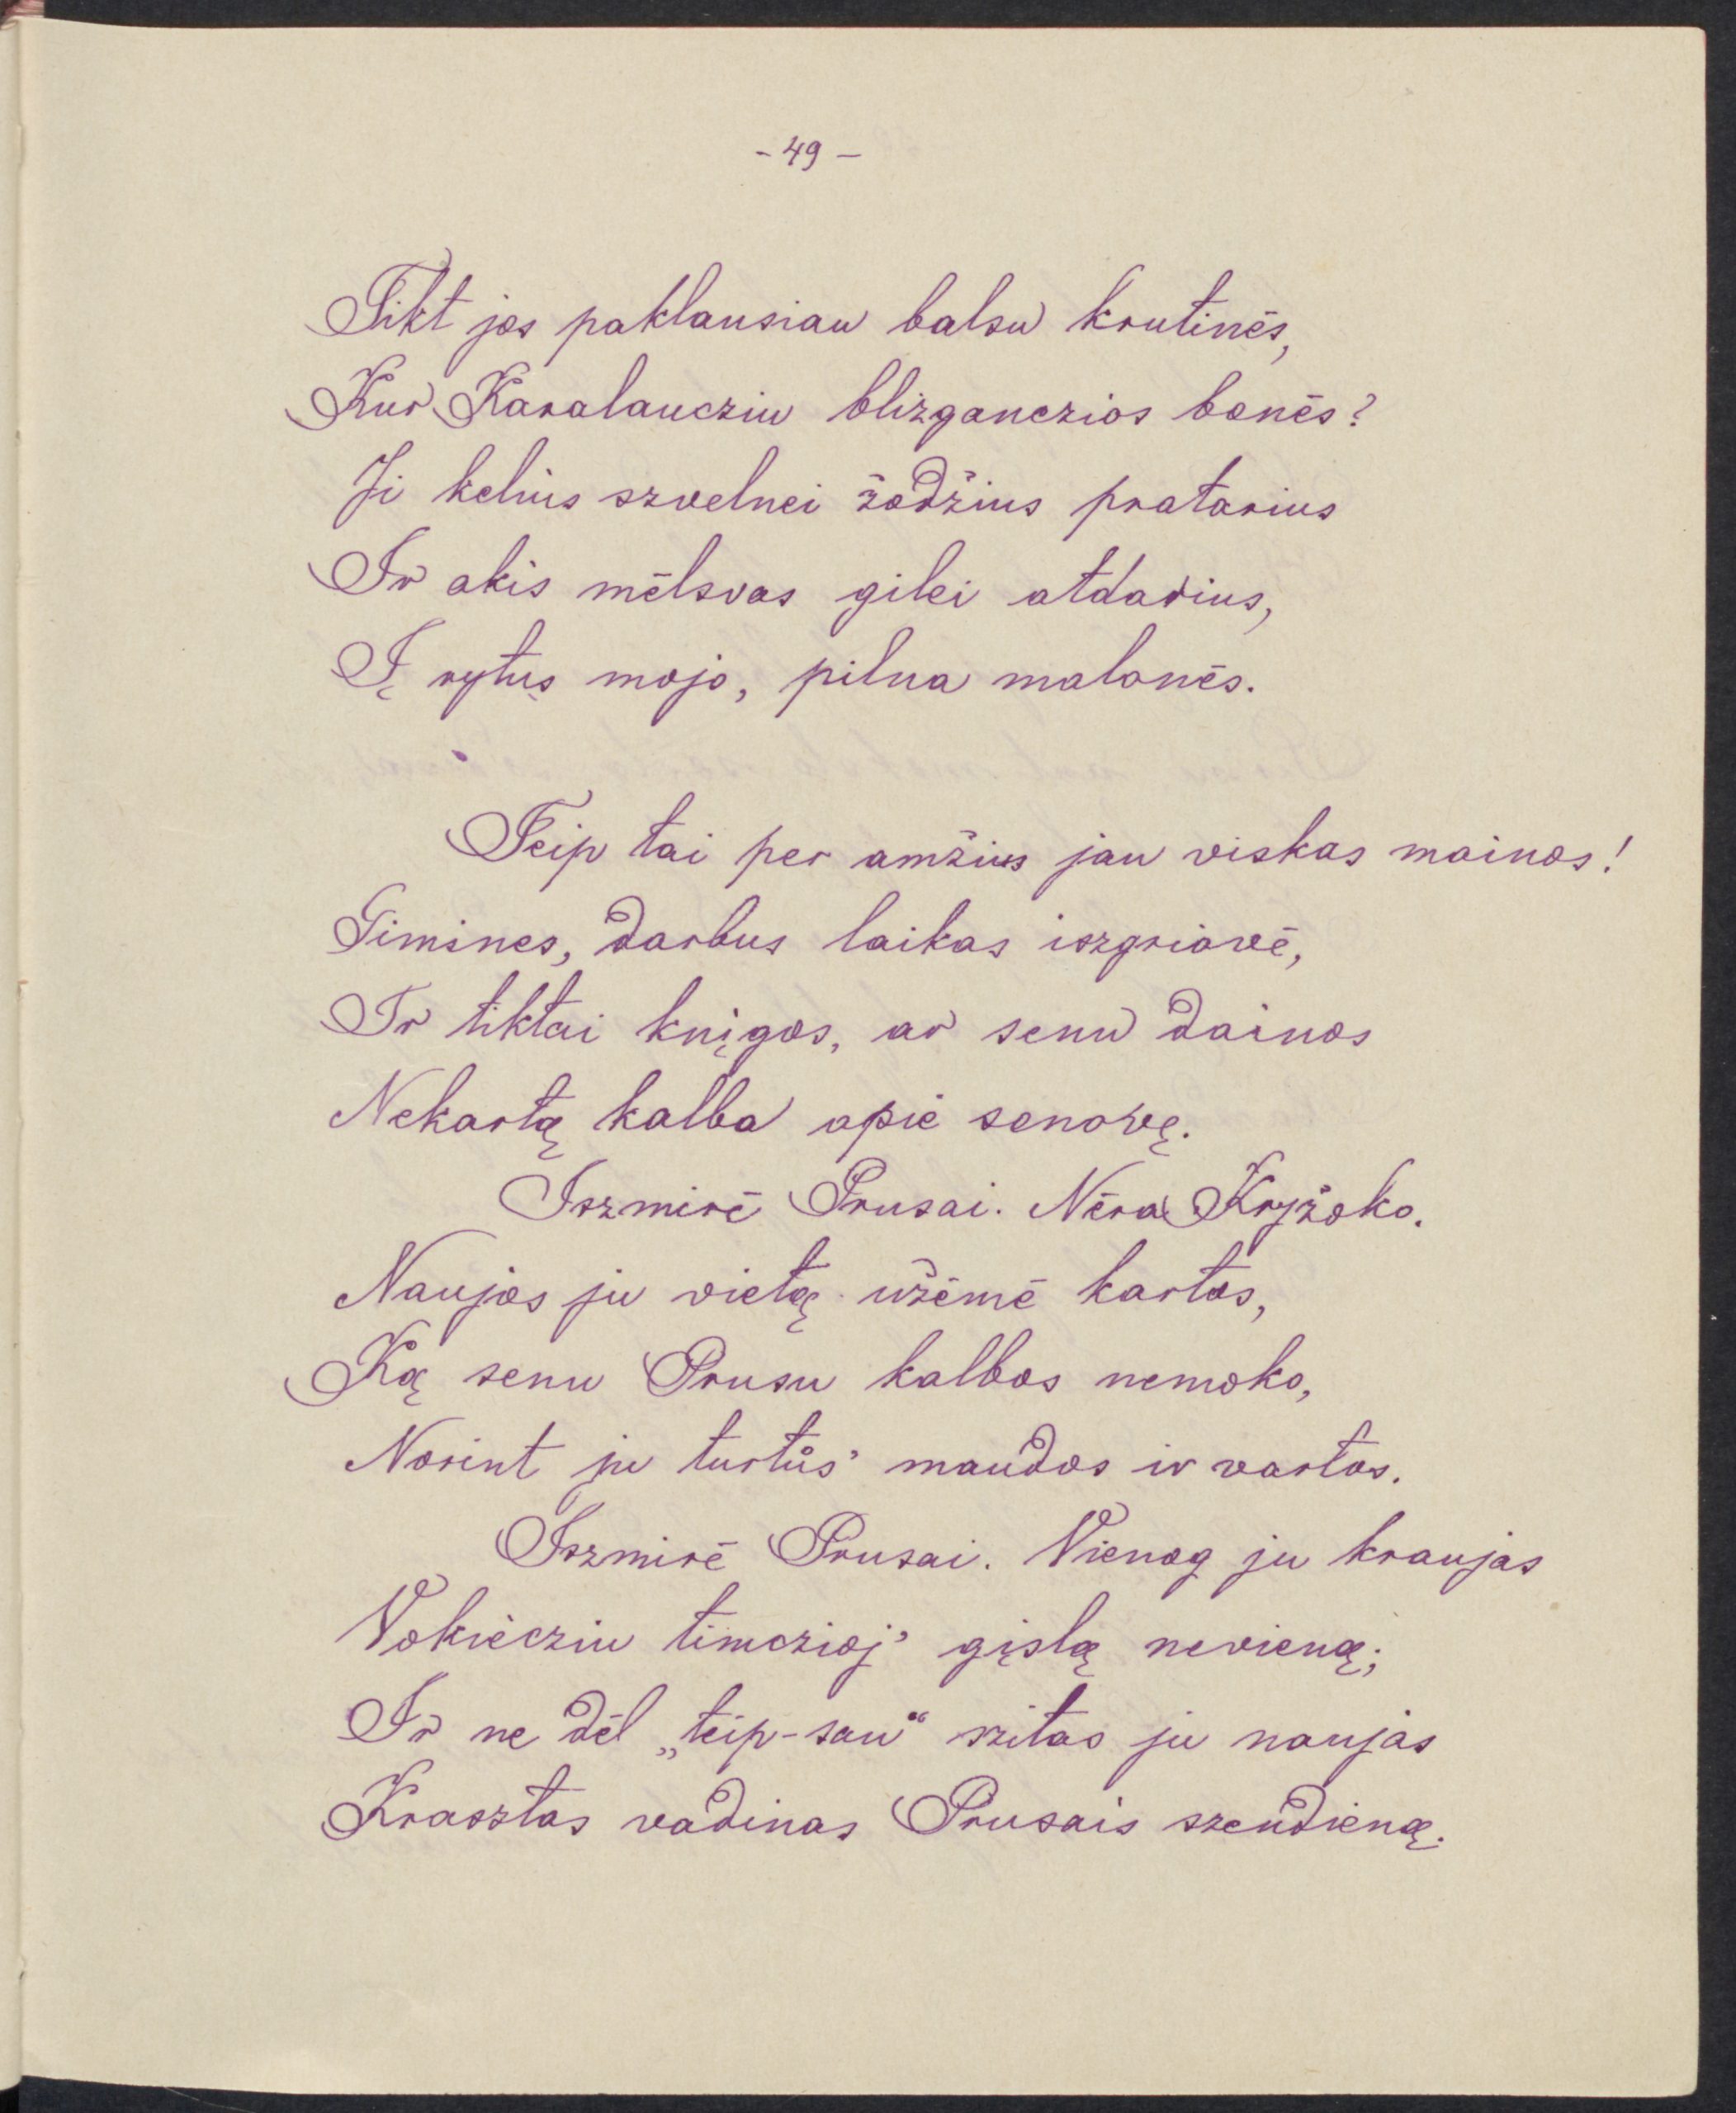 - 49 -
Tikt jos paklausiau balsu krutinės,
Kur Karalaucziu blizganczios bonės?
Ji kelius szvelnei žodžius pratarius
Ir akis mėlsvas gilei atdarius,
Į rytųs mojo, pilna malonės.
Teip tai per amžius jau viskas mainos!
Gimines, darbus laikas iszgriovė,
Ir tiktai knįgos, ar senu dainos
Nekartą kalba apie senovę.
Iszmirė Prusai. Nėra Kryžoko.
Naujos ju vietą užėmė kartos,
Ką senu Prusu kalbos nemoko,
Norint ju turtůs' maudos ir vartos.
Iszmirė Prusai. Vienog ju kraujas
Vokiėcziu timczioj' gįslą nevieną;
Ir ne dėl „teip-sau“ szitas ju naujas
Krasztas vadinas Prusais szendieną.